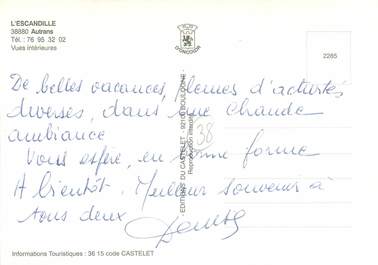 L'ESCANDILLE
38880 Autrans
Tél. : 76 95 32 02
Vues intérieures
2265
De belles vacances, pleines d'activités
diverses, dans une chaude
ambiance
Vous espère, en bonne forme
A bientôt. Meilleur souvenir à
tous deux
38
EDITIONS DU CASTELET - 92100 BOULOGNE
Reproduction interdite
Informations Touristiques : 36 15 code CASTELET